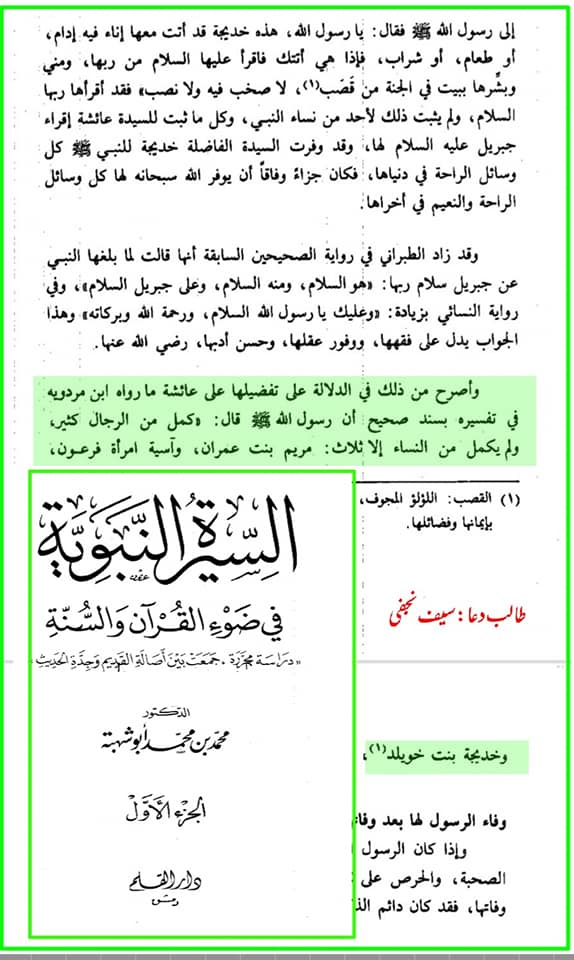 إلى رسول الله ﷺ فقال: يا رسول الله، هذه خديجة قد أتت معها إناء فيه إدام،
أو طعام، أو شراب، فإذا هي أتتك فاقرأ عليها السلام من ربها، ومني
وبشِّرها ببيت في الجنة من قَصَب(١)، لا صخب فيه ولا نصب» فقد أقرأها ربها
السلام، ولم يثبت ذلك لأحد من نساء النبي، وكل ما ثبت للسيدة عائشة إقراء
جبريل عليه السلام لها، وقد وفرت السيدة الفاضلة خديجة للنبي ﷺ كل
وسائل الراحة في دنياها، فكان جزاءً وفاقاً أن يوفر الله سبحانه لها كل وسائل
الراحة والنعيم في أخراها.
وقد زاد الطبراني في رواية الصحيحين السابقة أنها قالت لما بلغها النبي
عن جبريل سلام ربها: «هو السلام، ومنه السلام، وعلى جبريل السلام»، وفي
رواية النسائي بزيادة: «وعليك يا رسول الله السلام، ورحمة الله وبركاته» وهذا
الجواب يدل على فقهها، ووفور عقلها، وحسن أدبها، رضي الله عنها.
وأصرح من ذلك في الدلالة على تفضيلها على عائشة ما رواه ابن مردويه
في تفسيره بسند صحيح أن رسول الله ﷺ قال: «كمل من الرجال كثير،
ولم يكمل من النساء إلا ثلاث: مريم بنت عمران، وآسية امرأة فرعون،
(١) القصب: اللؤلؤ المجوف،
بإيمانها وفضائلها.
السيرة النبوية
في ضوء القرآن والسنة
«دراسة محررة، جمعت بين أصالة القديم وجدة الحديث»
الدكتور
محمد بن محمد أبو شهبة
الجزء الأول
دار القلم
دمشق
طالب دعا: سیف نجفی
وخديجة بنت خويلد(١)،
وفاء الرسول لها بعد وفاتها
وإذا كان الرسول
الصحبة، والحرص على
وفاتها، فقد كان دائم